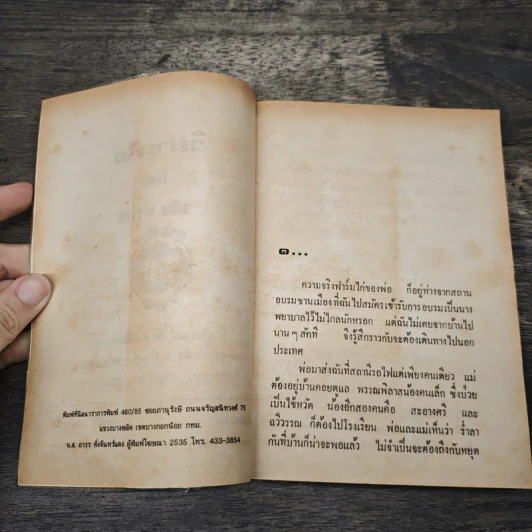 พิมพ์ที่นีลนาราการพิมพ์ 460/85 ซอยภาณุรังษี ถนนจรัญสนิทวงศ์ 75
แขวงบางพลัด เขตบางกอกน้อย กทม.
น.ส. อาวร ตั้งจันทร์แดง ผู้พิมพ์โฆษณา 2535 โทร. 433-3854
๑...
ความจริงฟาร์มไก่ของพ่อ ก็อยู่ห่างจากสถาน
อบรมชานเมืองที่ฉันไปสมัครเข้ารับการอบรมเป็นนาง
พยาบาลไว้ไม่ไกลนักหรอก แต่ฉันไม่เคยจากบ้านไป
นาน ๆ สักที จึงรู้สึกราวกับจะต้องเดินทางไปนอก
ประเทศ
พ่อมาส่งฉันที่สถานีรถไฟแต่เพียงคนเดียว แม่
ต้องอยู่บ้านคอยดูแล พรรณพิลาสน้องคนเล็ก ซึ่งป่วย
เป็นไข้หวัด น้องอีกสองคนคือ สะอางศรี และ
ฉวีวรรณ ก็ต้องไปโรงเรียน พ่อและแม่เห็นว่า ร่ำลา
กันที่บ้านก็น่าจะพอแล้ว ไม่จำเป็นจะต้องถึงกับหยุด